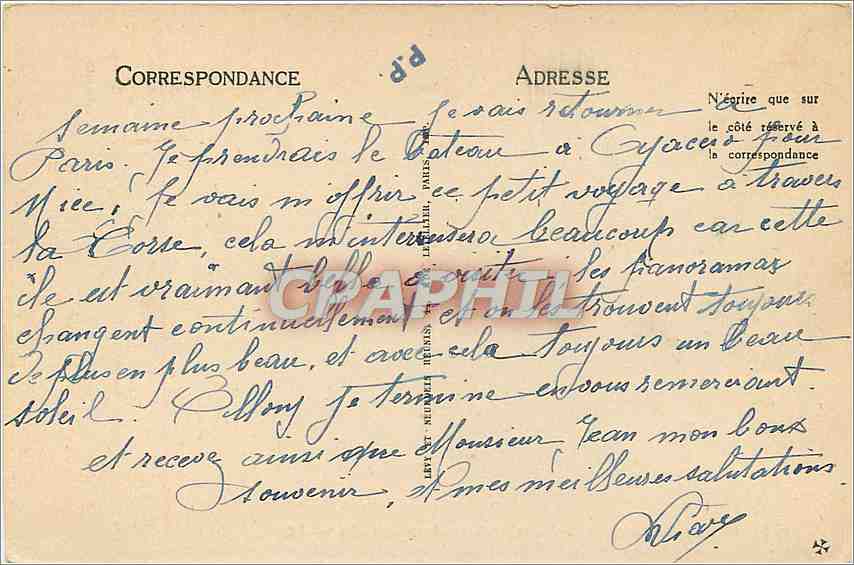 CORRESPONDANCE
P.P
ADRESSE
N'écrire que sur
le côté réservé à
la correspondance
semaine prochaine je vais retourner à
Paris. Je prendrais le bateau à Ajaccio pour
Nice, Je vais m'offrir ce petit voyage à travers
la Corse, cela m'interessera beaucoup car cette
île est vraimant belle à visiter, les panoramaz
changent continuellement et on les trouvent toujours
de plus en plus beau, et avec cela toujours un beau
soleil. Allons je termine en vous remerciant.
et recevez ainsi que Monsieur Jean mon bons
souvenir, et mes meilleures salutations.
LÉVY ET NEURDEIN RÉUNIS, LETELLIER, PARIS IMP.
CPAPHIL